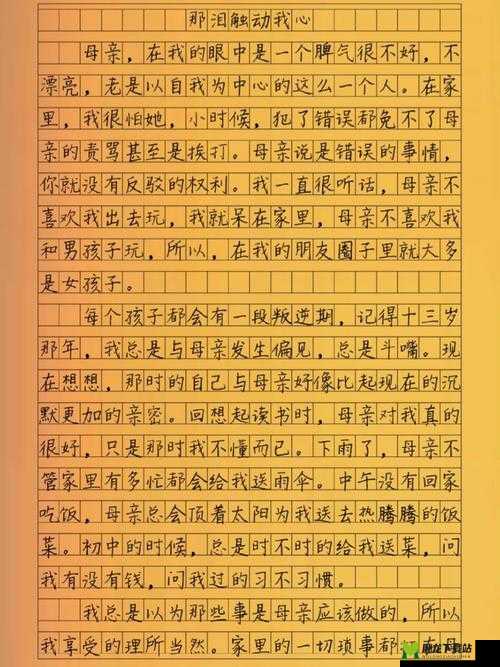 那泪触动我心
母亲，在我的眼中是一个脾气很不好，不
漂亮，老是以自我为中心的这么一个人。在家
里，我很怕她，小时候，犯了错误都免不了母
亲的责骂甚至是挨打。母亲说是错误的事情，
你就没有反驳的权利。我一直很听话，母亲不
喜欢我出去玩，我就呆在家里，母亲不喜欢我
和男孩子玩，所以，在我的朋友圈子里就大多
是女孩子。
每个孩子都会有一段叛逆期，记得十三岁
那年，我总是与母亲发生偏见，总是斗嘴。现
在想想，那时的自己与母亲好像比起现在的沉
默更加的亲密。回想起读书时，母亲对我真的
很好，只是那时我不懂而已。下雨了，母亲不
管家里有多忙都会给我送雨伞。中午没有回家
吃饭，母亲总会顶着太阳为我送去热腾腾的饭
菜。初中的时候，总是时不时的给我送菜，问
我有没有钱，问我过的习不习惯。
我总是以为那些事是母亲应该做的，所以
我享受的理所当然。家里的一切琐事都
龙下载站